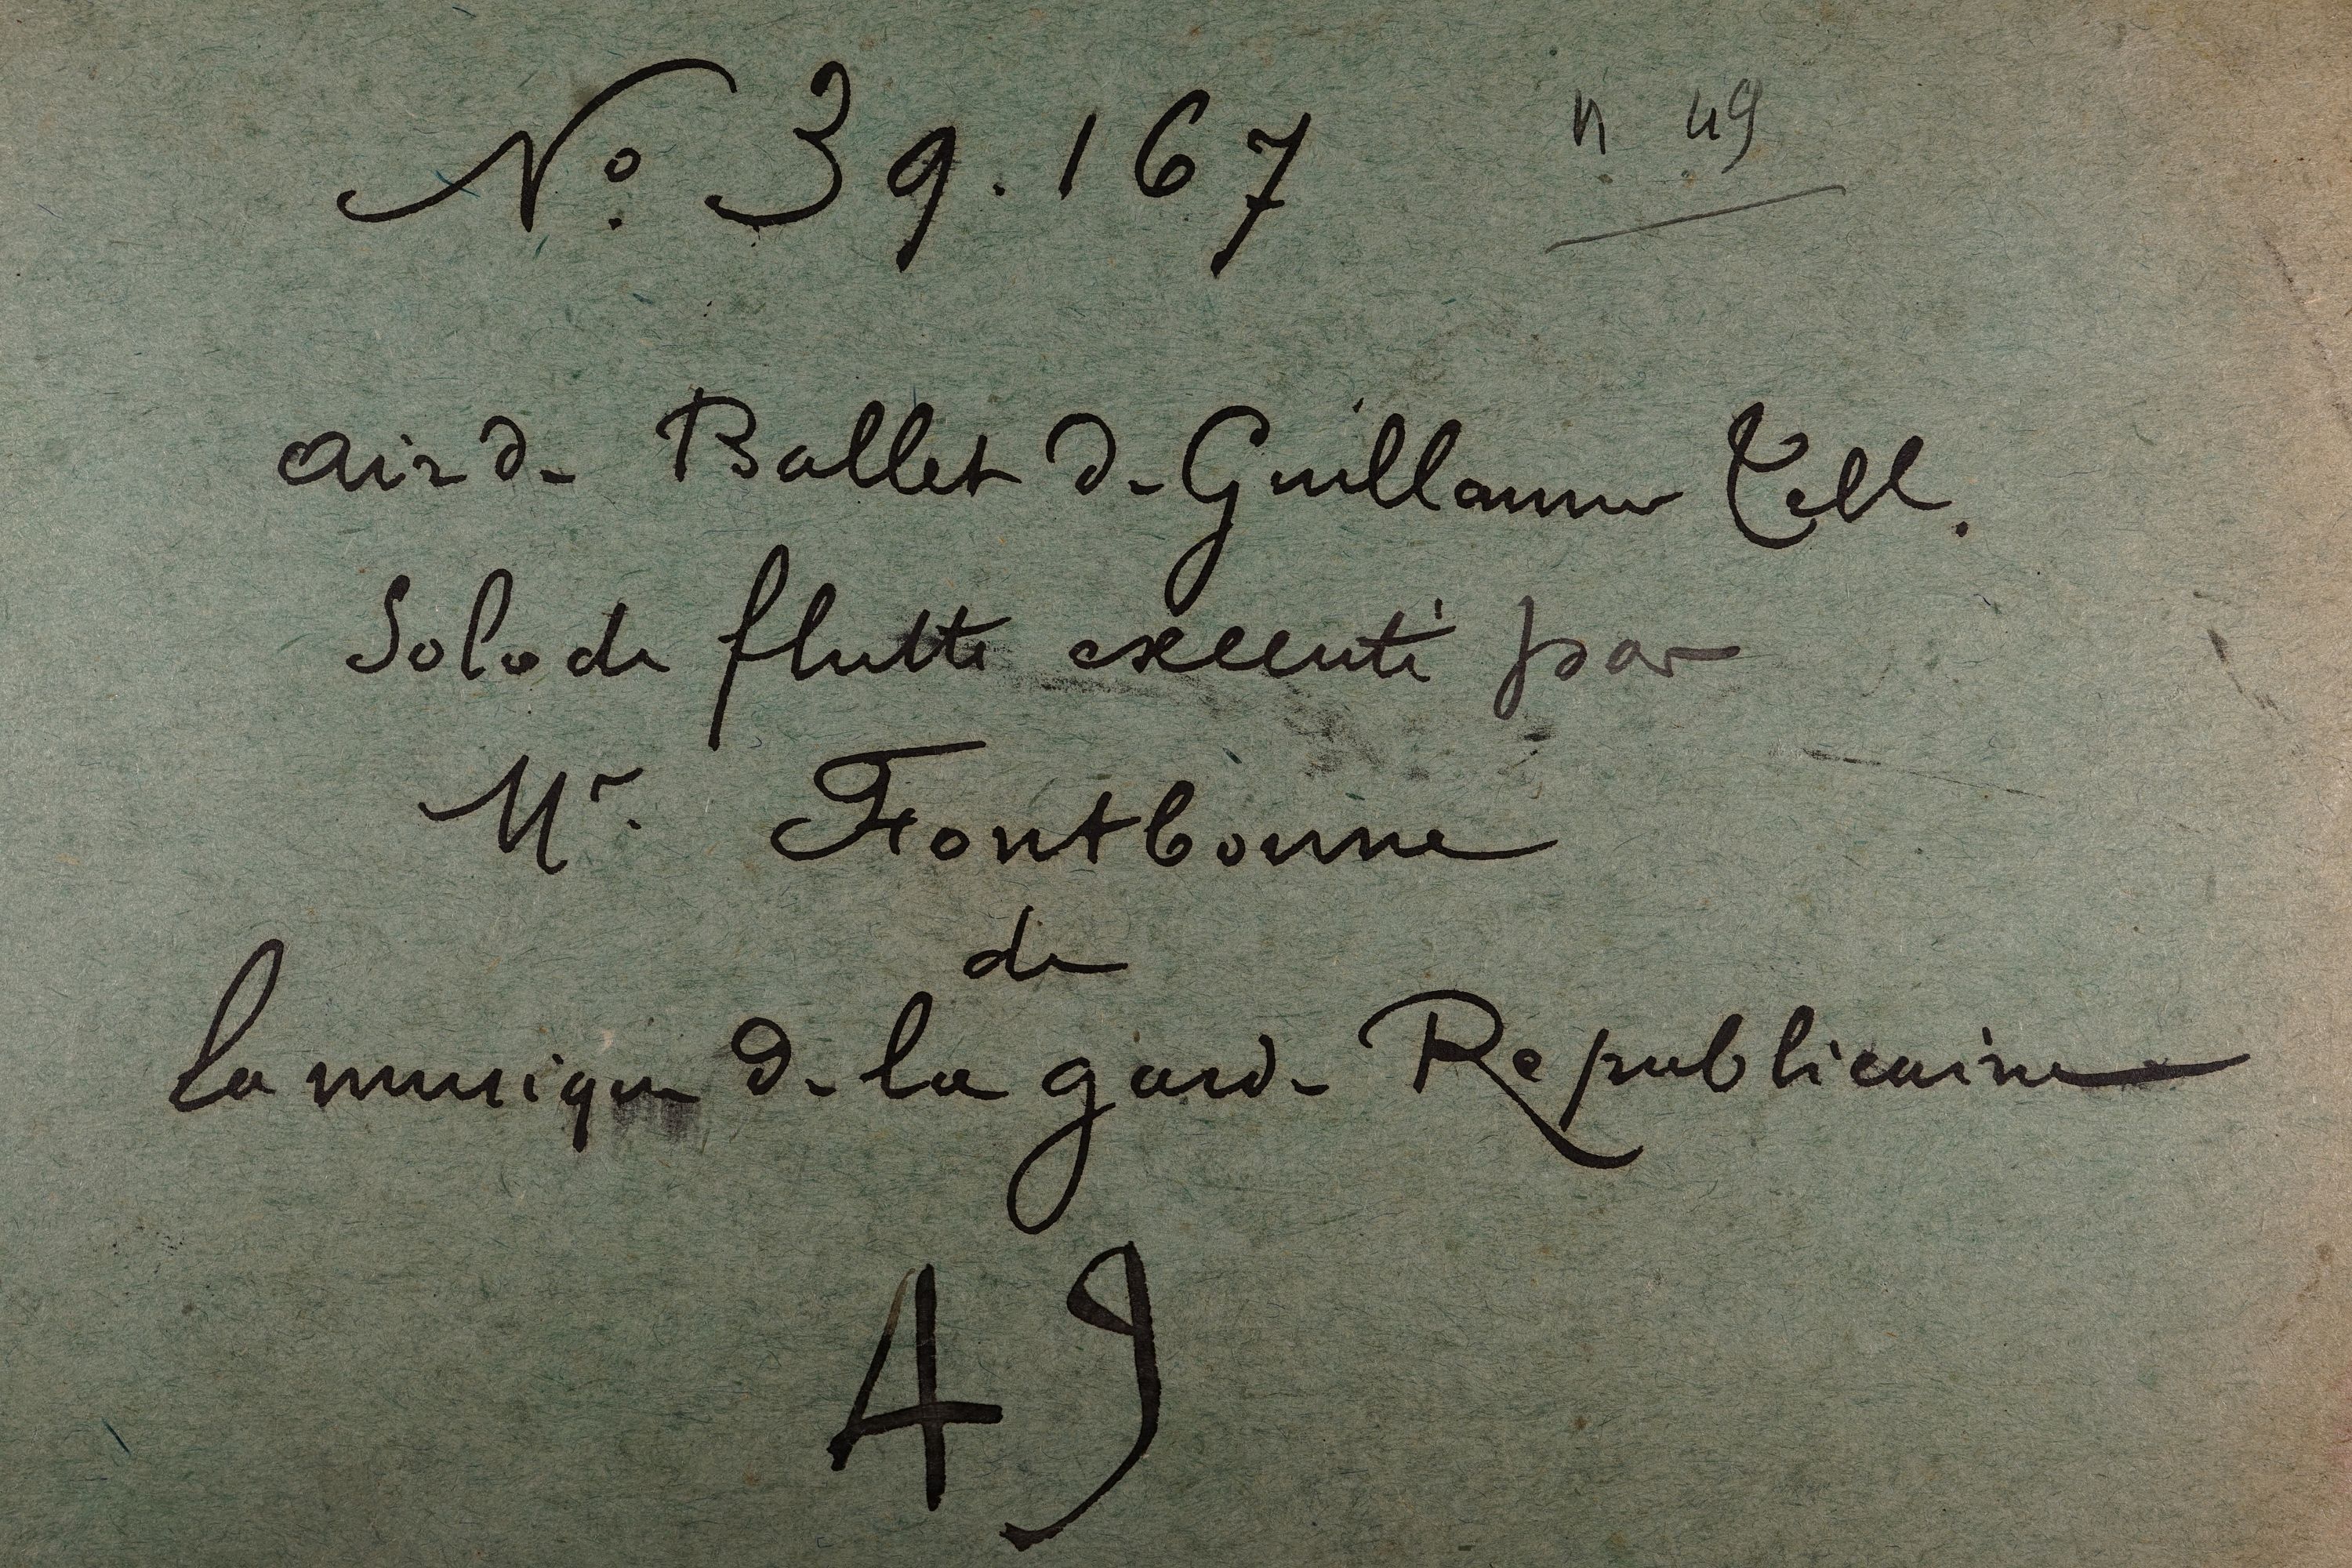 No. 39.167 n. 49
Air de Ballet de Guillaume Tell.
Solo de flutte executé par
Mr. Fontbonne
de
la musique de la garde Republicaine
49